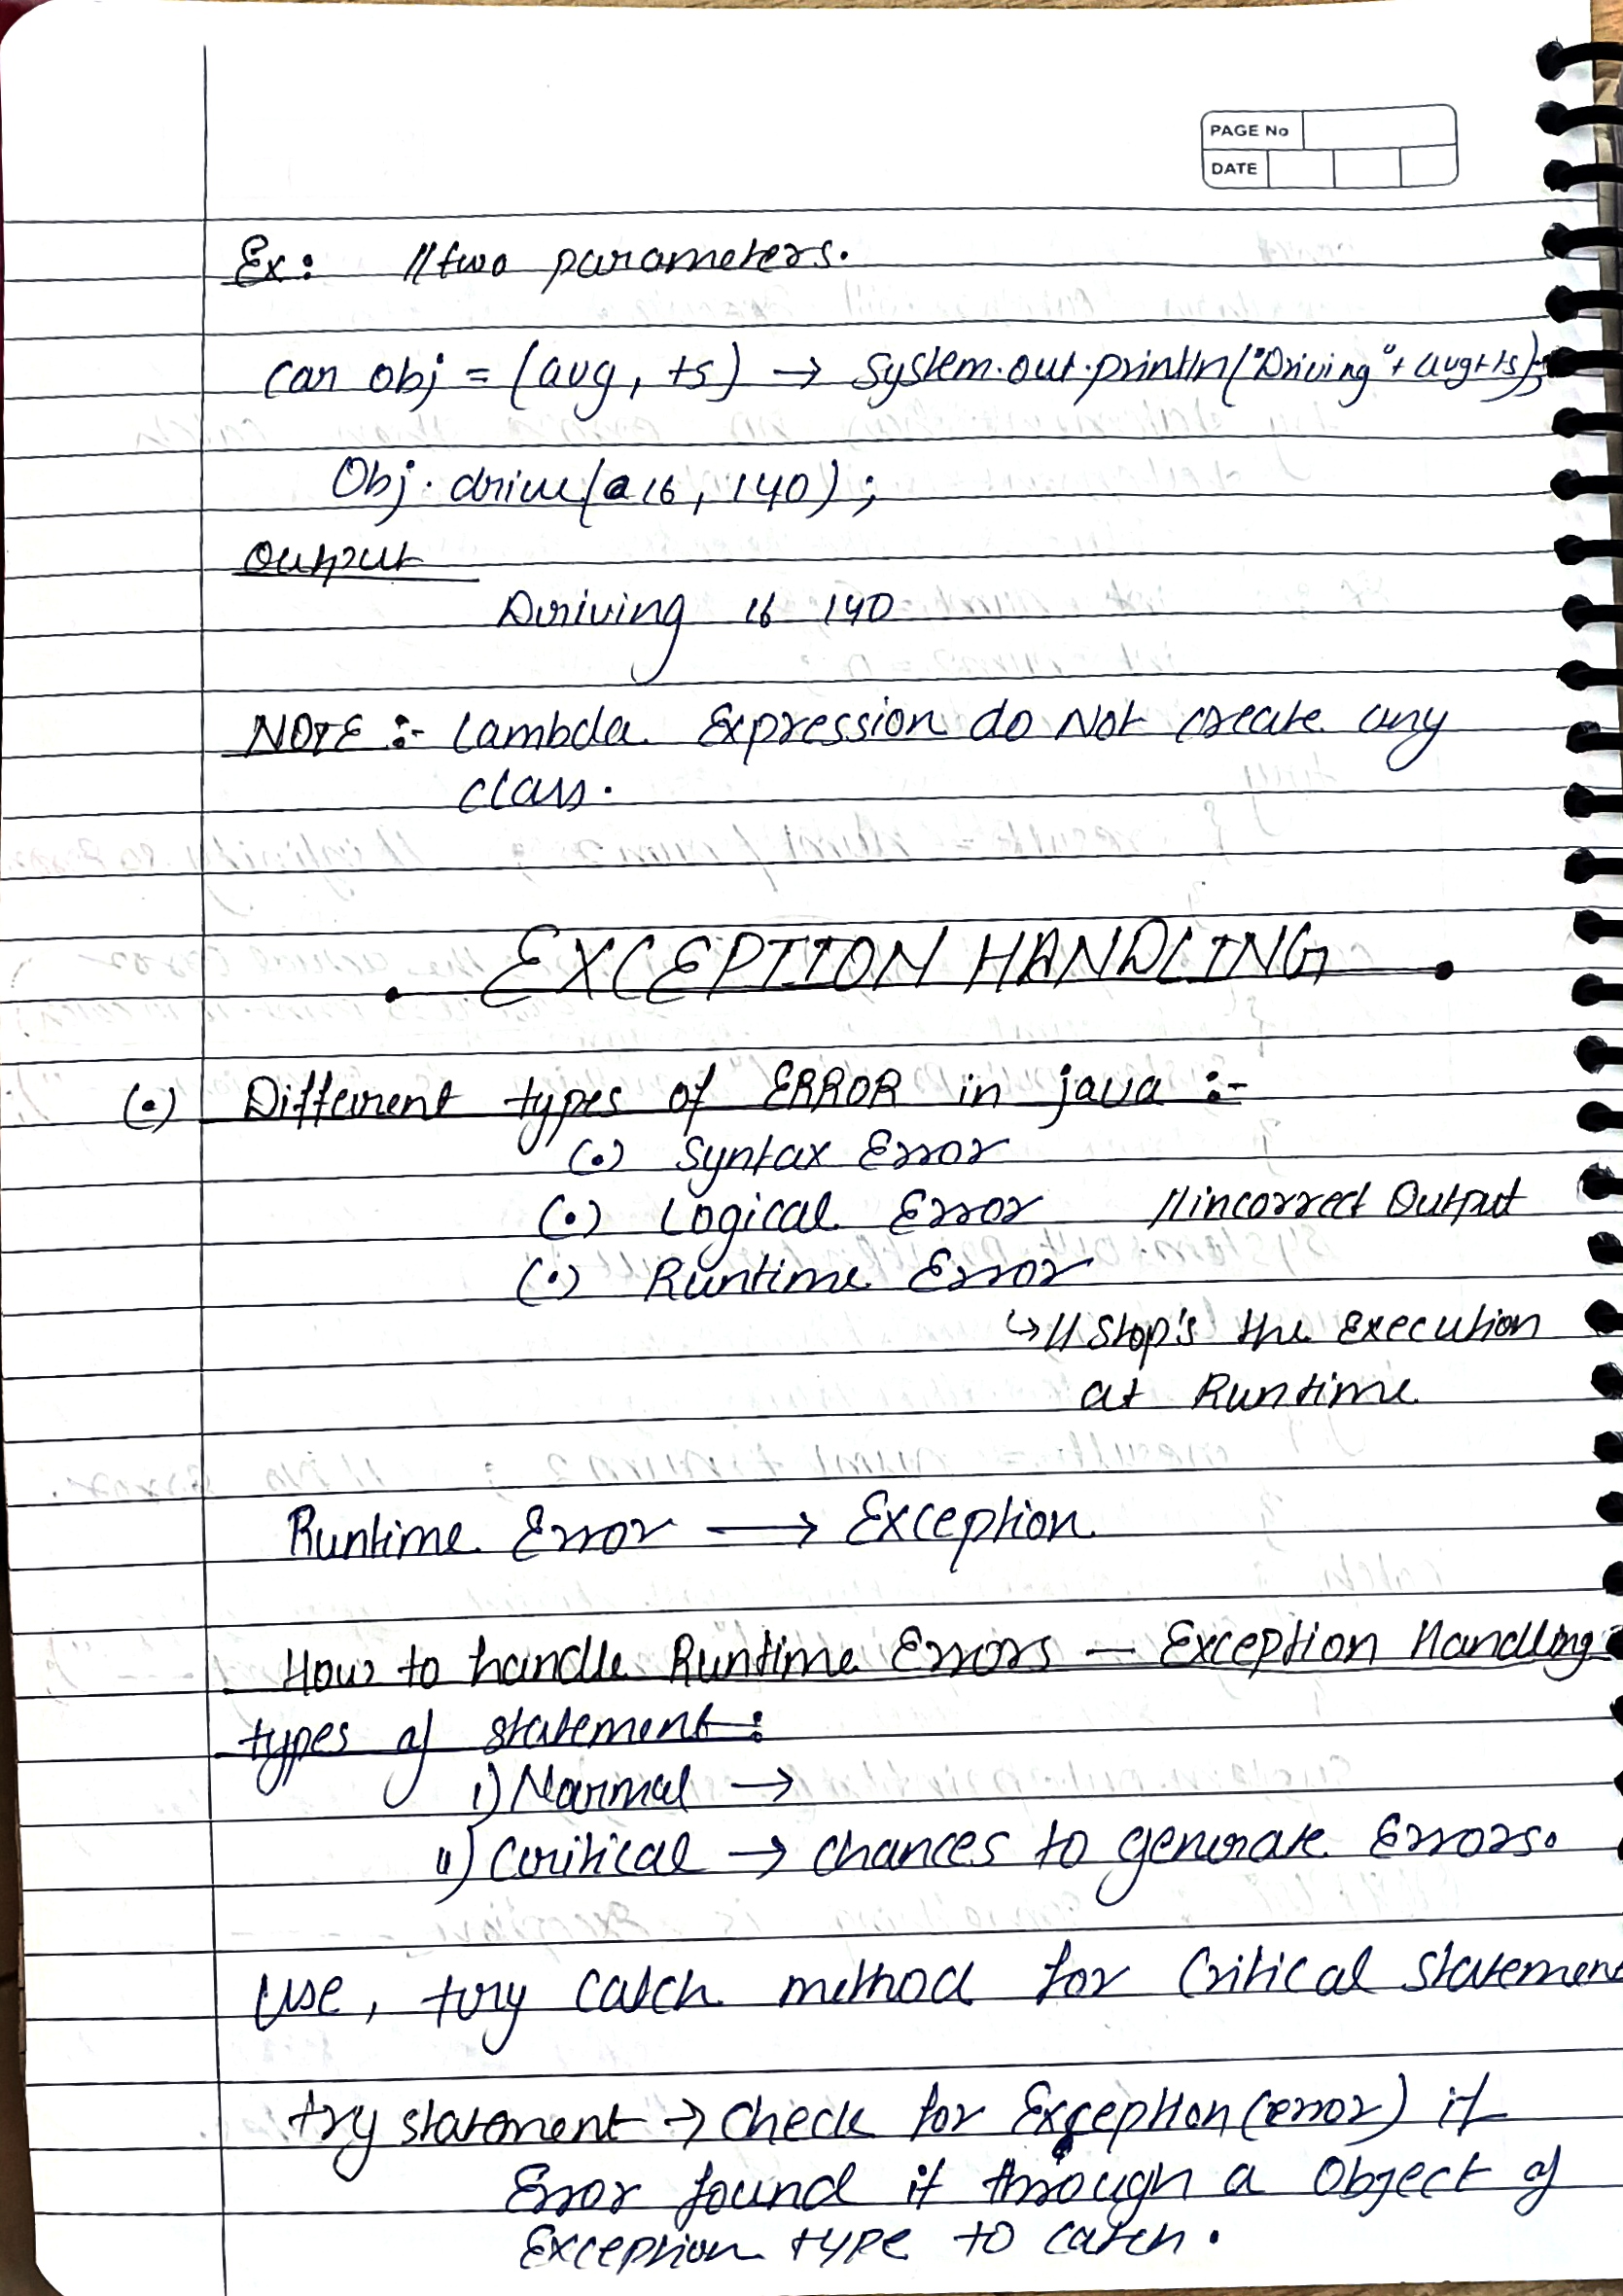 PAGE No
DATE
Ex: //two parameters.
Car obj = (avg, ts) → System.out.println("Driving" + avg+ts);
Obj.drive(a16, 140);
Output
Driving 16 140
NOTE :- Lambda Expression do Not create any
class.
EXCEPTION HANDLING
(•) Different types of ERROR in java :-
(•) Syntax Error
(•) Logical Error //incorrect Output
(•) Runtime Error
↳ // Stop's the Execution
at Runtime
Runtime Error → Exception
How to handle Runtime Errors — Exception Handling
types of statement:
i) Normal →
ii) Critical → chances to generate Errors.
Use, try catch method for Critical Statement
try statement → Check for Exception (error) if
Error found it through a Object of
Exception type to catch.